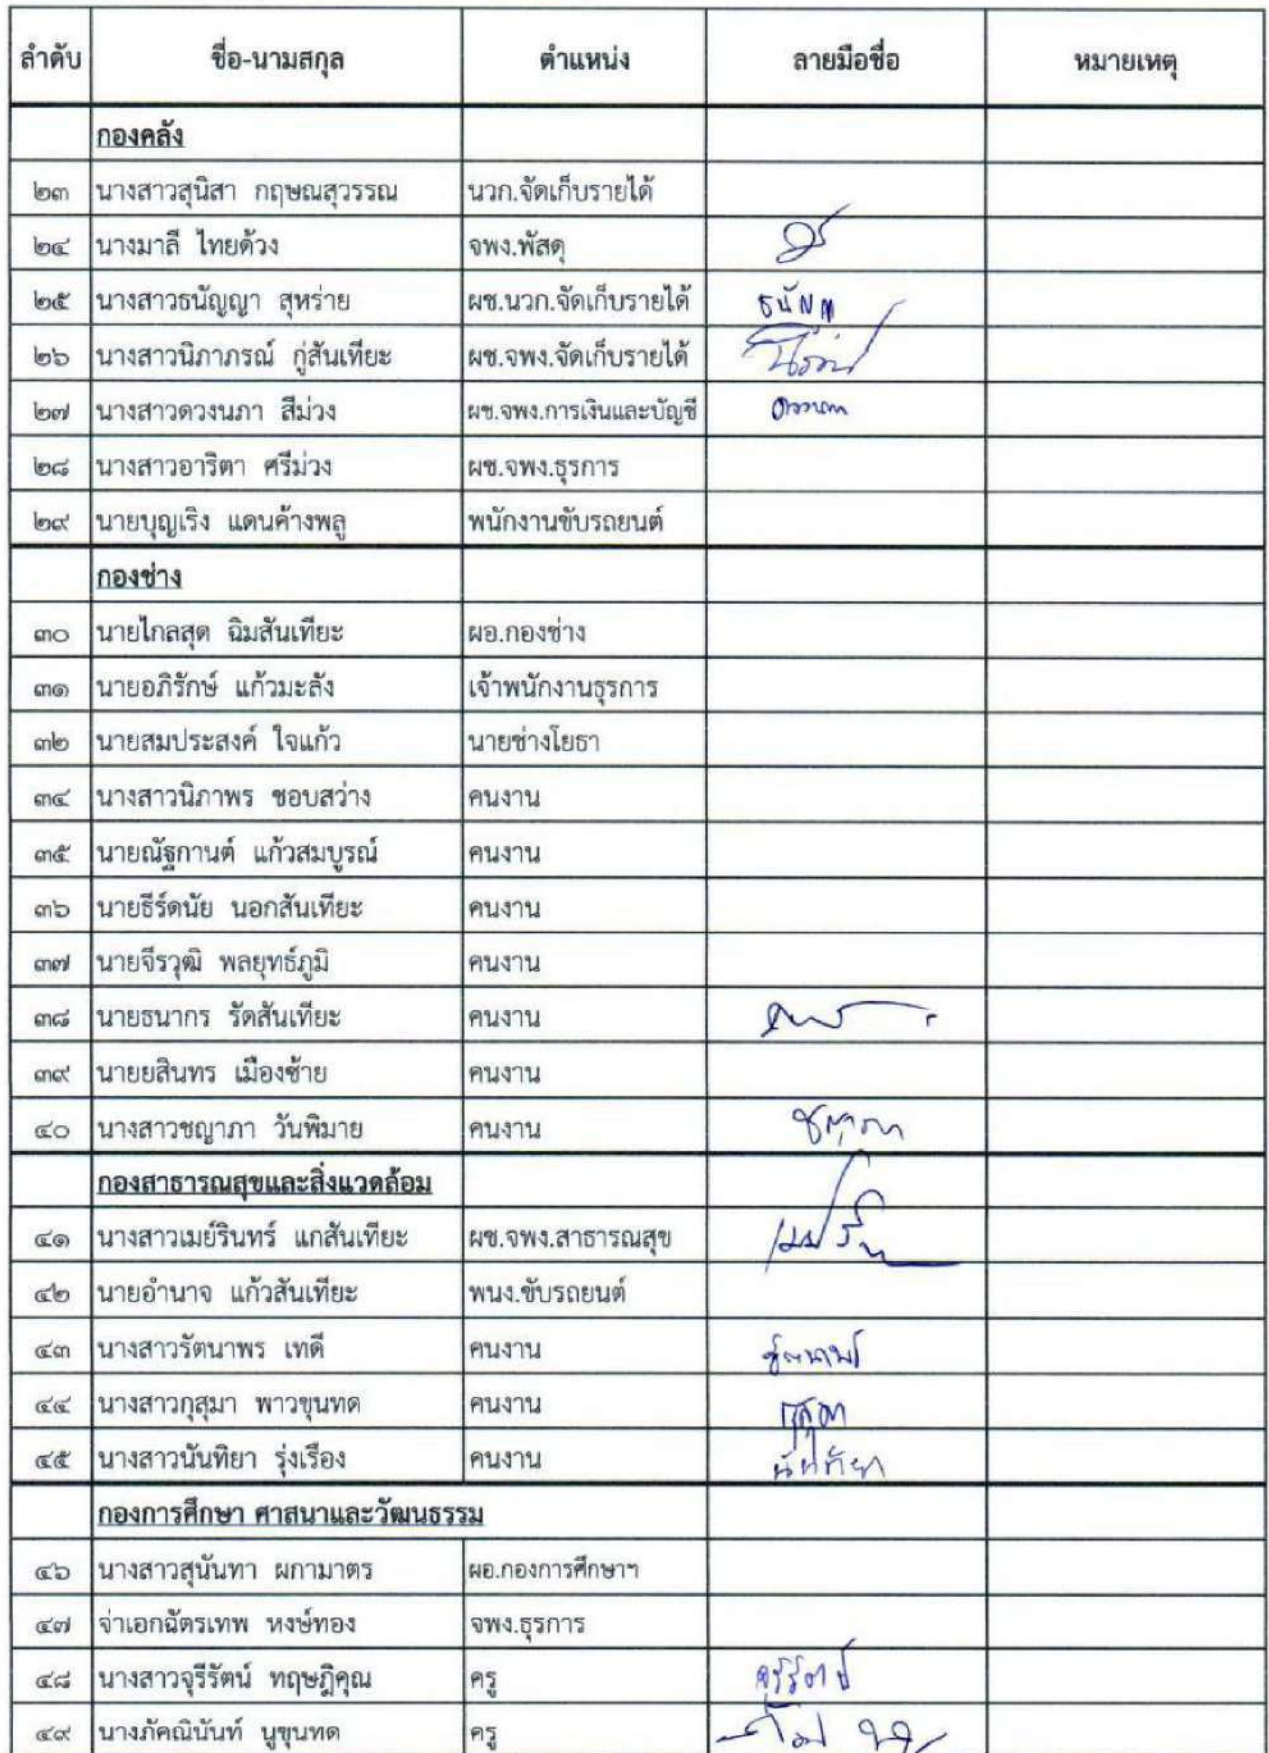 ลำดับ ชื่อ-นามสกุล ตำแหน่ง ลายมือชื่อ หมายเหตุ
กองคลัง
๒๓ นางสาวสุนิสา กฤษณสุวรรณ นวก.จัดเก็บรายได้
๒๔ นางมาลี ไทยด้วง จพง.พัสดุ
๒๕ นางสาวธนัญญา สุหร่าย ผช.นวก.จัดเก็บรายได้
๒๖ นางสาวนิภาภรณ์ กู่สันเทียะ ผช.จพง.จัดเก็บรายได้
๒๗ นางสาวดวงนภา สีม่วง ผช.จพง.การเงินและบัญชี ดวงนภา
๒๘ นางสาวอาริตา ศรีม่วง ผช.จพง.ธุรการ
๒๙ นายบุญเริง แดนค้างพลู พนักงานขับรถยนต์
กองช่าง
๓๐ นายไกลสุด ฉิมสันเทียะ ผอ.กองช่าง
๓๑ นายอภิรักษ์ แก้วมะลัง เจ้าพนักงานธุรการ
๓๒ นายสมประสงค์ ใจแก้ว นายช่างโยธา
๓๔ นางสาวนิภาพร ชอบสว่าง คนงาน
๓๕ นายณัฐกานต์ แก้วสมบูรณ์ คนงาน
๓๖ นายธีร์ดนัย นอกสันเทียะ คนงาน
๓๗ นายจีรวุฒิ พลยุทธ์ภูมิ คนงาน
๓๘ นายธนากร รัดสันเทียะ คนงาน
๓๙ นายยสินทร เมืองซ้าย คนงาน
๔๐ นางสาวชญาภา วันพิมาย คนงาน ชญาภา
กองสาธารณสุขและสิ่งแวดล้อม
๔๑ นางสาวเมย์รินทร์ แกสันเทียะ ผช.จพง.สาธารณสุข
๔๒ นายอำนาจ แก้วสันเทียะ พนง.ขับรถยนต์
๔๓ นางสาวรัตนาพร เทดี คนงาน รัตนาพร
๔๔ นางสาวกุสุมา พาวขุนทด คนงาน กุสุมา
๔๕ นางสาวนันทิยา รุ่งเรือง คนงาน นันทิยา
กองการศึกษา ศาสนาและวัฒนธรรม
๔๖ นางสาวสุนันทา ผกามาตร ผอ.กองการศึกษาฯ
๔๗ จ่าเอกฉัตรเทพ หงษ์ทอง จพง.ธุรการ
๔๘ นางสาวจุรีรัตน์ ทฤษฎิคุณ ครู จุรีรัตน์
๔๙ นางภัคณินันท์ นูขุนทด ครู